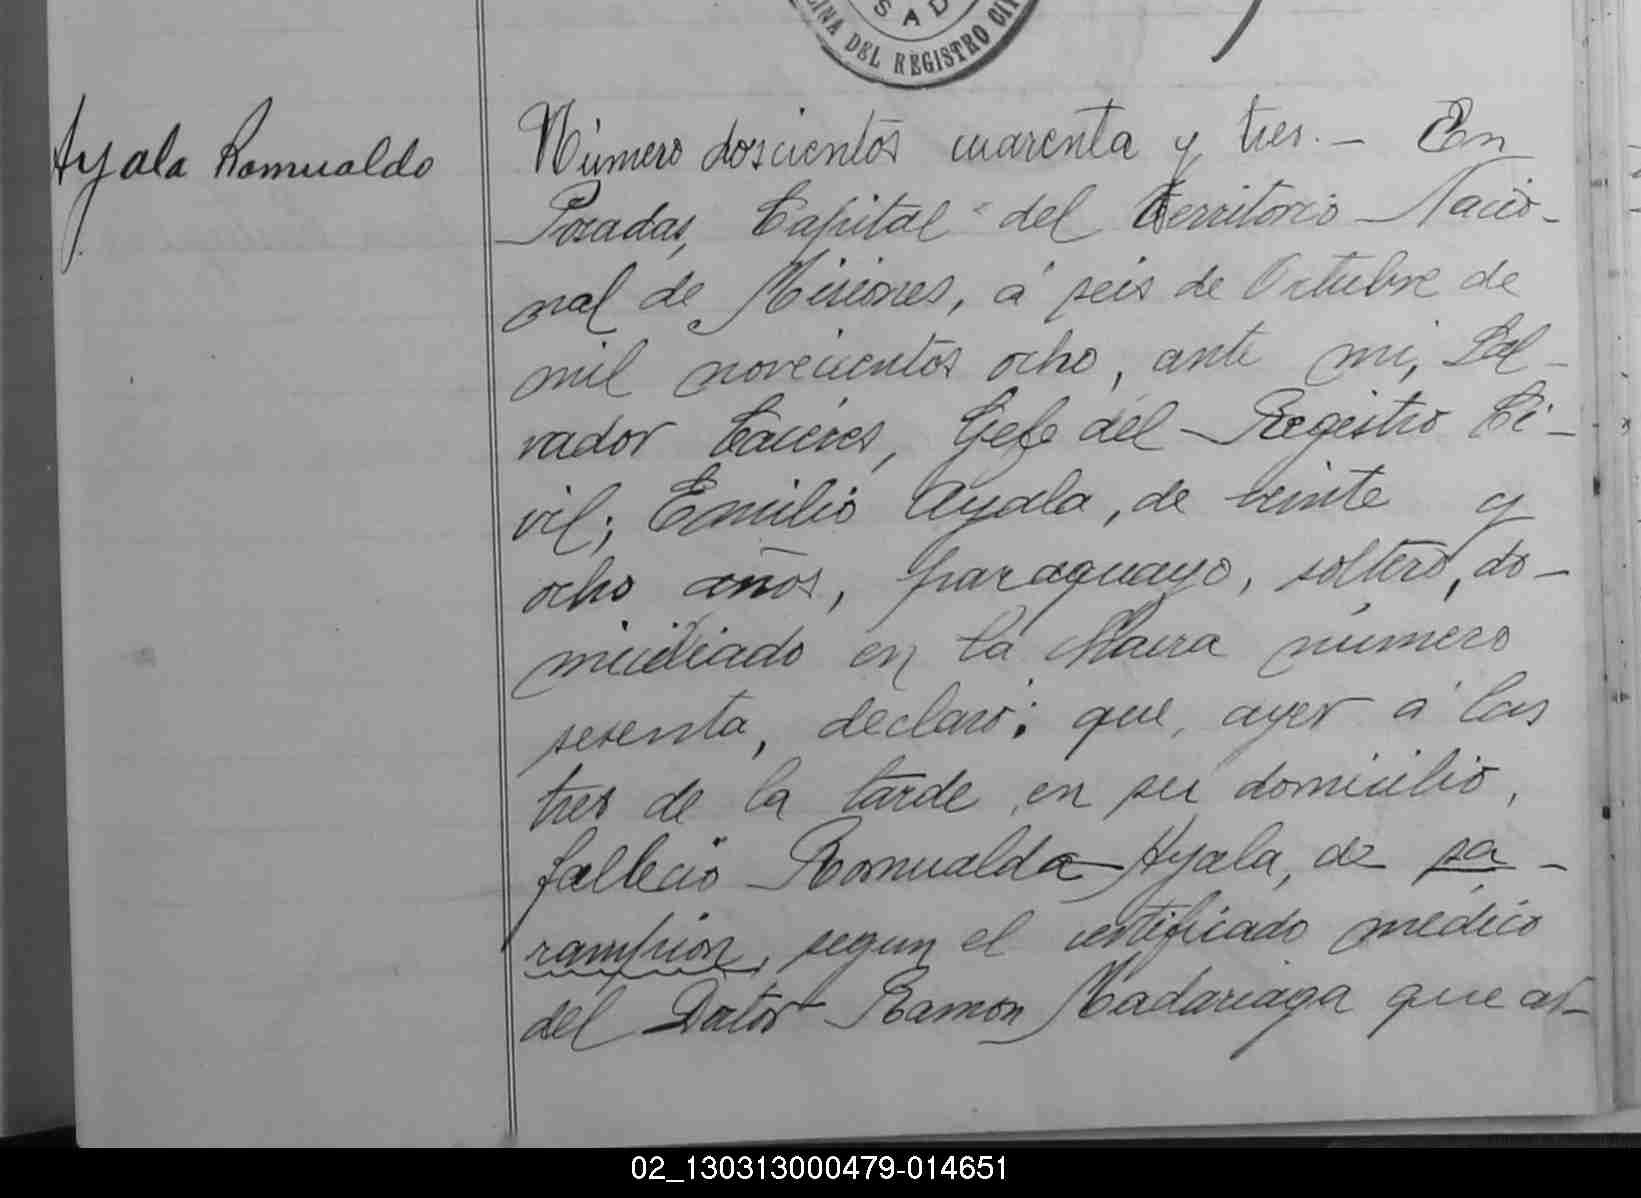 SAD
CINA DEL REGISTRO CIV
Ayala Romualdo
Número doscientos cuarenta y tres.- En
Posadas, Capital del Territorio Nacio-
nal de Misiones, á seis de Octubre de
mil novecientos ocho, ante mi, Sal-
vador Cáceres, Gefe del Registro Ci-
vil; Emilio Ayala, de veinte y
ocho años, paraguayo, soltero, do-
miciliado en la Chacra número
sesenta, declaró: que, ayer á las
tres de la tarde, en su domicilio,
falleció Romualda Ayala, de sa-
rampion, segun el certificado médico
del Doctor Ramon Madariaga que ar-
02_130313000479-014651